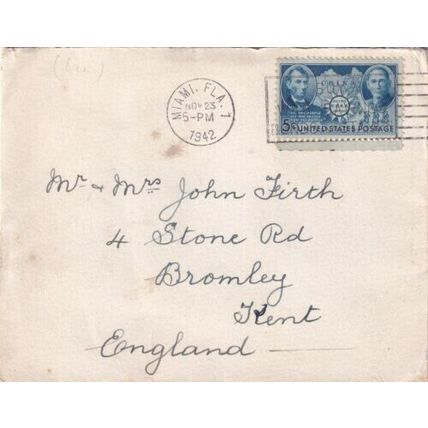 MIAMI, FLA. 1
NOV 23
5-PM
1942
5¢ UNITED STATES POSTAGE
Mr & Mrs John Firth
4 Stone Rd
Bromley
Kent
England